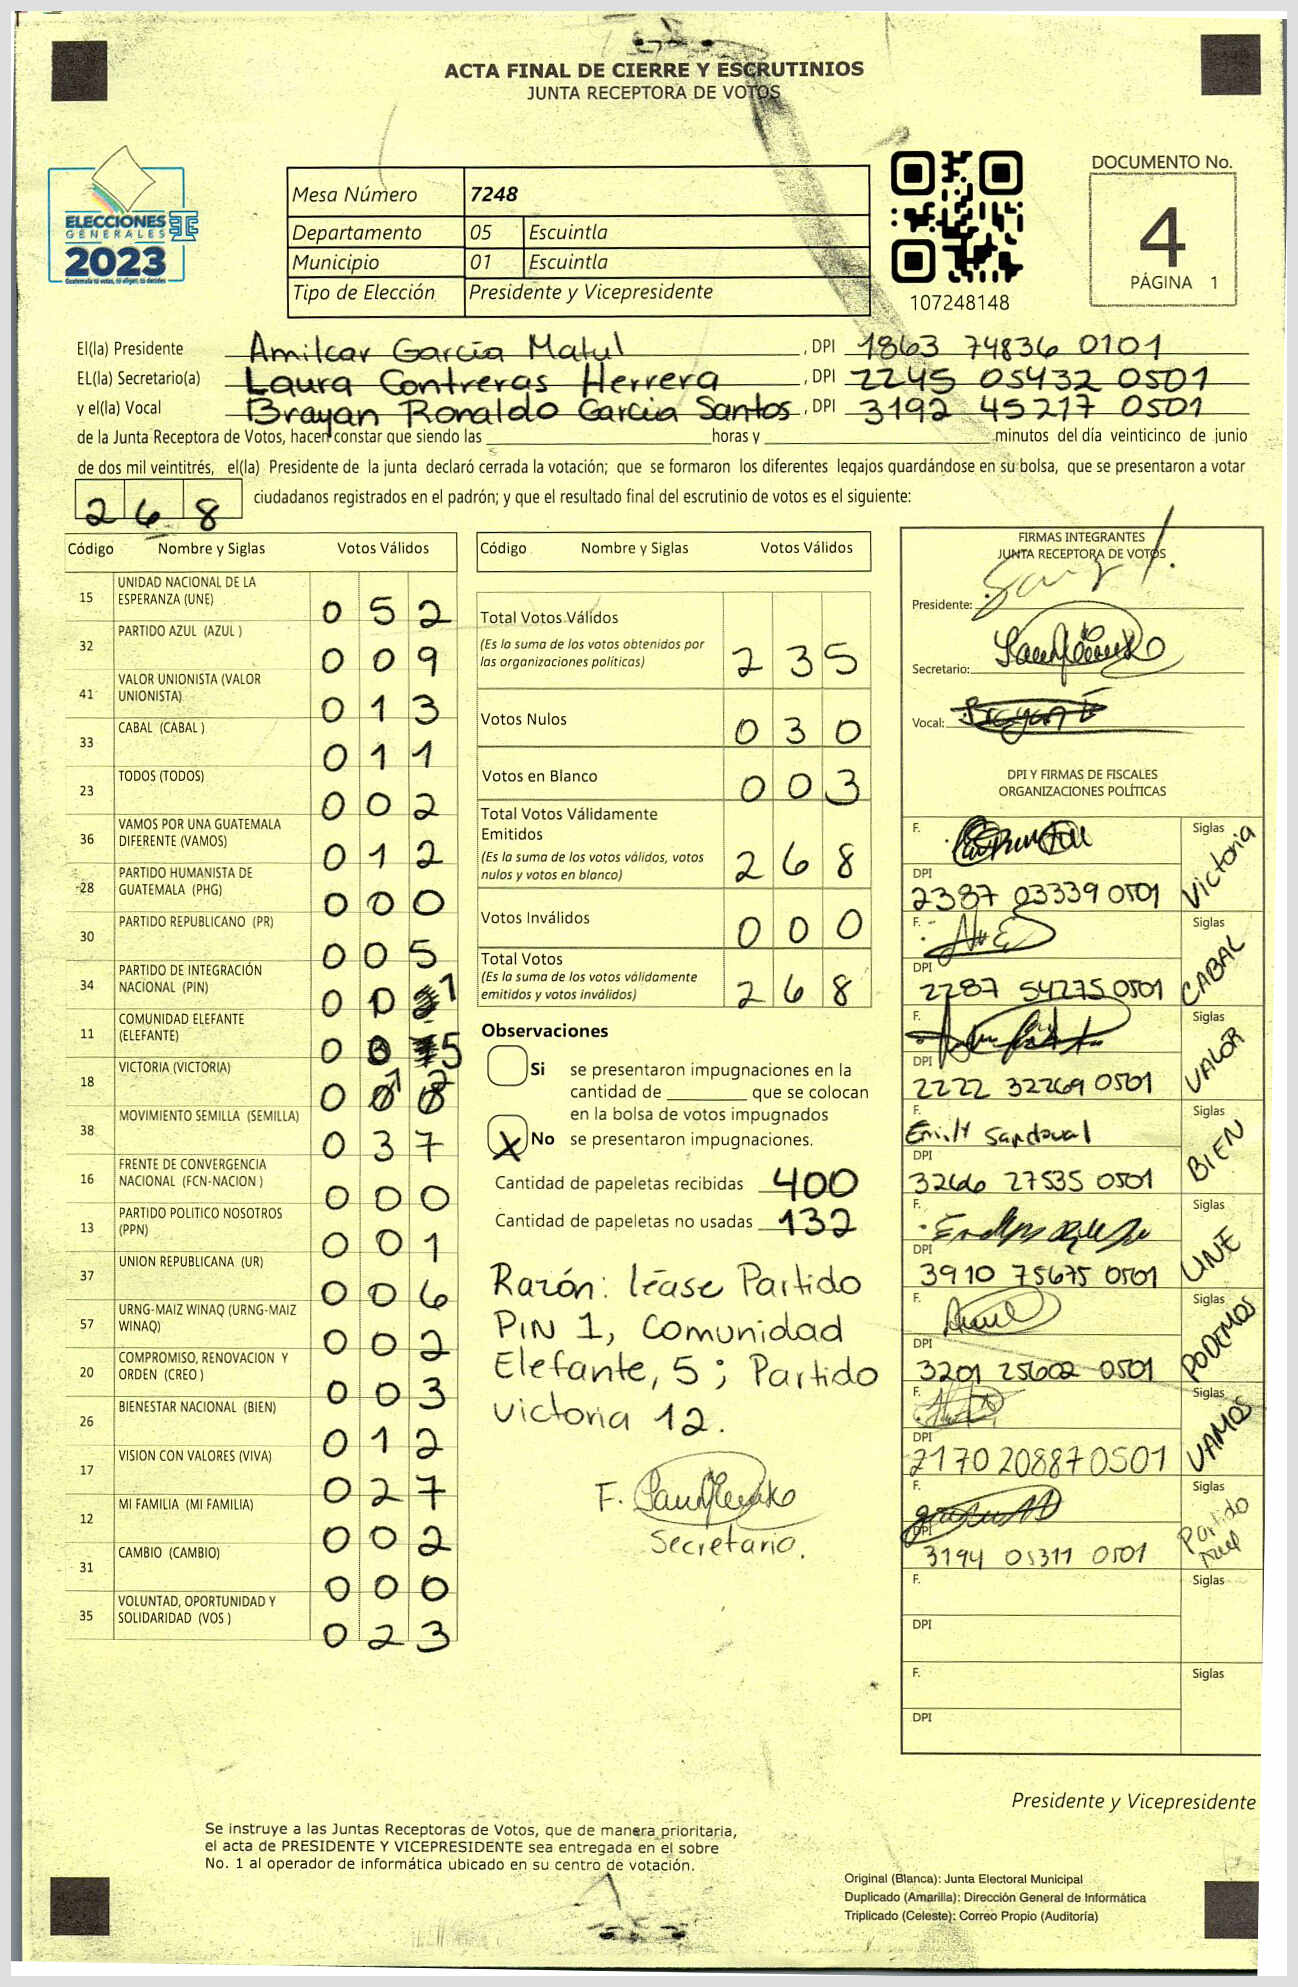 ACTA FINAL DE CIERRE Y ESCRUTINIOS
JUNTA RECEPTORA DE VOTOS
ELECCIONES
GENERALES
2023
Guatemala tú votas, tú eliges, tú decides
Mesa Número 7248
Departamento 05 Escuintla
Municipio 01 Escuintla
Tipo de Elección Presidente y Vicepresidente
107248148
DOCUMENTO No.
4
PÁGINA 1
El(la) Presidente Amilcar García Matul , DPI 1863 74836 0101
EL(la) Secretario(a) Laura Contreras Herrera , DPI 2245 05432 0501
y el(la) Vocal Brayan Ronaldo Garcia Santos , DPI 3192 45217 0501
de la Junta Receptora de Votos, hacen constar que siendo las horas y minutos del día veinticinco de junio
de dos mil veintitrés, el(la) Presidente de la junta declaró cerrada la votación; que se formaron los diferentes legajos quardándose en su bolsa, que se presentaron a votar
268 ciudadanos registrados en el padrón; y que el resultado final del escrutinio de votos es el siguiente:
Código Nombre y Siglas Votos Válidos
15 UNIDAD NACIONAL DE LA ESPERANZA (UNE) 0 5 2
32 PARTIDO AZUL (AZUL ) 0 0 9
41 VALOR UNIONISTA (VALOR UNIONISTA) 0 1 3
33 CABAL (CABAL ) 0 1 1
23 TODOS (TODOS) 0 0 2
36 VAMOS POR UNA GUATEMALA DIFERENTE (VAMOS) 0 1 2
28 PARTIDO HUMANISTA DE GUATEMALA (PHG) 0 0 0
30 PARTIDO REPUBLICANO (PR) 0 0 5
34 PARTIDO DE INTEGRACIÓN NACIONAL (PIN) 0 0 1
11 COMUNIDAD ELEFANTE (ELEFANTE) 0 0 5
18 VICTORIA (VICTORIA) 0 1 2
38 MOVIMIENTO SEMILLA (SEMILLA) 0 3 7
16 FRENTE DE CONVERGENCIA NACIONAL (FCN-NACION ) 0 0 0
13 PARTIDO POLITICO NOSOTROS (PPN) 0 0 1
37 UNION REPUBLICANA (UR) 0 0 6
57 URNG-MAIZ WINAQ (URNG-MAIZ WINAQ) 0 0 2
20 COMPROMISO, RENOVACION Y ORDEN (CREO ) 0 0 3
26 BIENESTAR NACIONAL (BIEN) 0 1 2
17 VISION CON VALORES (VIVA) 0 2 7
12 MI FAMILIA (MI FAMILIA) 0 0 2
31 CAMBIO (CAMBIO) 0 0 0
35 VOLUNTAD, OPORTUNIDAD Y SOLIDARIDAD (VOS ) 0 2 3
Código Nombre y Siglas Votos Válidos
Total Votos Válidos 2 3 5
(Es la suma de los votos obtenidos por
las organizaciones políticas)
Votos Nulos 0 3 0
Votos en Blanco 0 0 3
Total Votos Válidamente
Emitidos 2 6 8
(Es la suma de los votos válidos, votos
nulos y votos en blanco)
Votos Inválidos 0 0 0
Total Votos 2 6 8
(Es la suma de los votos válidamente
emitidos y votos inválidos)
Observaciones
Si se presentaron impugnaciones en la
cantidad de que se colocan
en la bolsa de votos impugnados
X No se presentaron impugnaciones.
Cantidad de papeletas recibidas 400
Cantidad de papeletas no usadas 132
Razón: léase Partido
PIN 1, Comunidad
Elefante, 5 ; Partido
victoria 12.
F.
Secretario.
FIRMAS INTEGRANTES
JUNTA RECEPTORA DE VOTOS
Presidente:
Secretario:
Vocal:
DPI Y FIRMAS DE FISCALES
ORGANIZACIONES POLÍTICAS
F. Siglas Victoria
DPI 2387 03339 0501
F. Siglas CABAL
DPI 2287 54275 0501
F. Siglas VALOR
DPI 2222 32269 0501
F. Sandoval Siglas BIEN
DPI 3266 27535 0501
F. Siglas UNE
DPI 3910 75675 0501
F. Siglas PODEMOS
DPI 3201 25602 0501
F. Siglas VAMOS
DPI 2170 20887 0501
F. Siglas Partido
DPI 3194 05311 0501
F. Siglas
DPI
F. Siglas
DPI
Presidente y Vicepresidente
Se instruye a las Juntas Receptoras de Votos, que de manera prioritaria,
el acta de PRESIDENTE Y VICEPRESIDENTE sea entregada en el sobre
No. 1 al operador de informática ubicado en su centro de votación.
Original (Blanca): Junta Electoral Municipal
Duplicado (Amarilla): Dirección General de Informática
Triplicado (Celeste): Correo Propio (Auditoría)